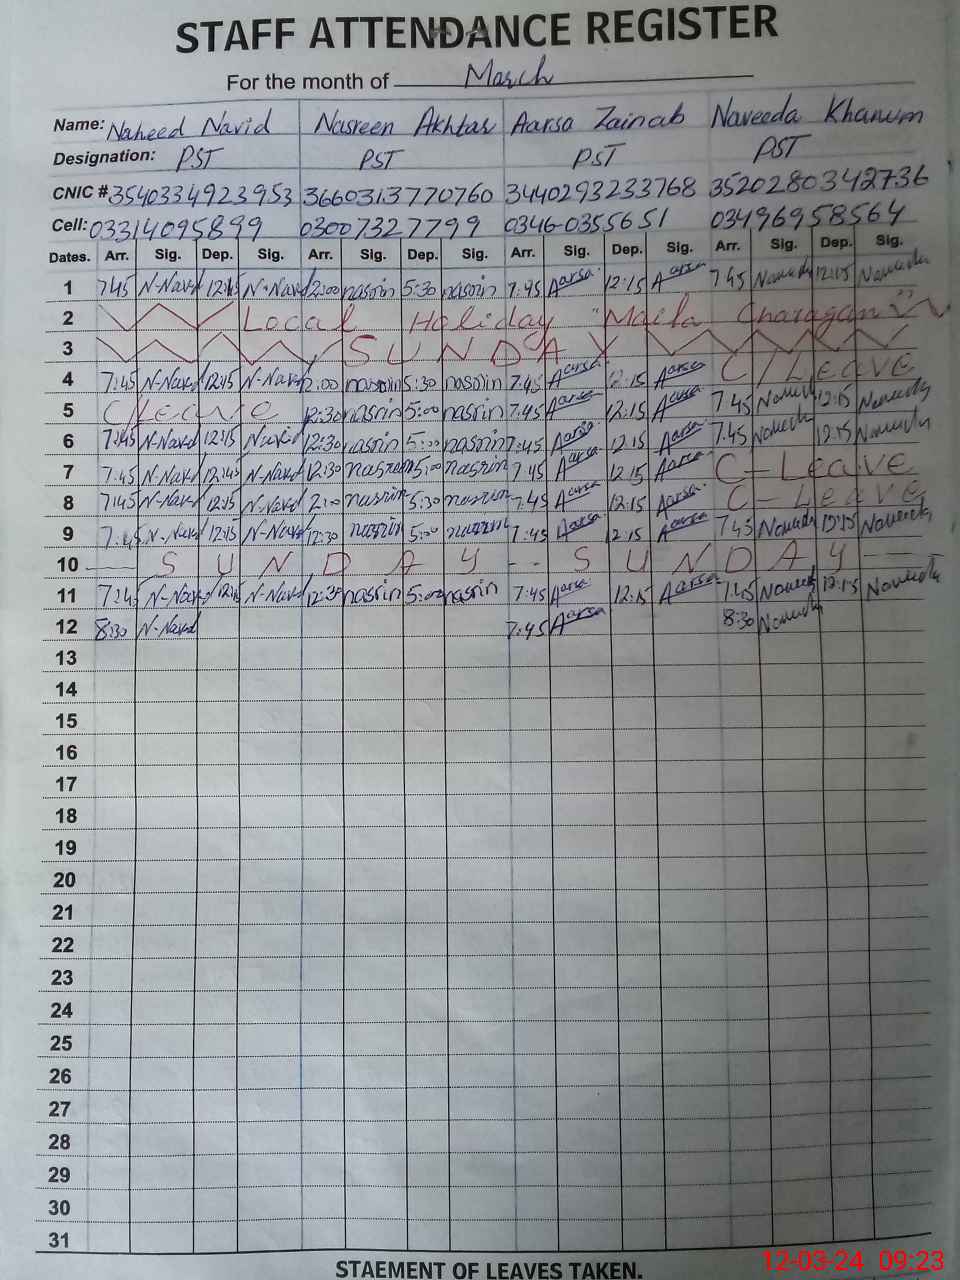 STAFF ATTENDANCE REGISTER
For the month of March
Name: Naheed Navid Nasreen Akhtar Aarsa Zainab Naveeda Khanum
Designation: PST PST PST PST
CNIC # 3540334923953 3660313770760 3440293233768 3520280342736
Cell: 03314095899 03007327799 0346-0355651 03496958564
Dates. Arr. Sig. Dep. Sig. Arr. Sig. Dep. Sig. Arr. Sig. Dep. Sig. Arr. Sig. Dep. Sig.
1 7:45 N-Navd 12:15 N-Navd 2:00 nasrin 5:30 nasrin 7:45 Aarsa 12:15 Aarsa 7:45 12:15
2 Local Holiday "Maila Charagan"
3 SUNDAY
4 7:45 N-Navd 12:15 N-Navd 2:00 nasrin 5:30 nasrin 7:45 Aarsa 12:15 Aarsa C/Leave
5 C/Leave 12:30 nasrin 5:00 nasrin 7:45 Aarsa 12:15 Aarsa 7:45 12:15
6 7:45 N-Navd 12:15 Navid 12:30 nasrin 5:00 nasrin 7:45 Aarsa 12:15 Aarsa 7:45 12:15
7 7:45 N-Navd 12:45 N-Navd 12:30 nasrin 5:00 nasrin 7:45 Aarsa 12:15 Aarsa C-Leave
8 7:45 N-Navd 12:15 N-Navd 2:00 nasrin 5:30 nasrin 7:45 Aarsa 12:15 Aarsa C-Leave
9 7:45 N-Navd 12:15 N-Navd 12:30 nasrin 5:00 7:45 Aarsa 12:15 Aarsa 7:45 12:15
10 SUNDAY -- SUNDAY
11 7:45 N-Navd 12:15 N-Navd 12:30 nasrin 5:00 nasrin 7:45 Aarsa 12:15 Aarsa 7:45 12:15
12 8:30 N-Navd 7:45 Aarsa 8:30
13
14
15
16
17
18
19
20
21
22
23
24
25
26
27
28
29
30
31
STAEMENT OF LEAVES TAKEN.
12-03-24 09:23